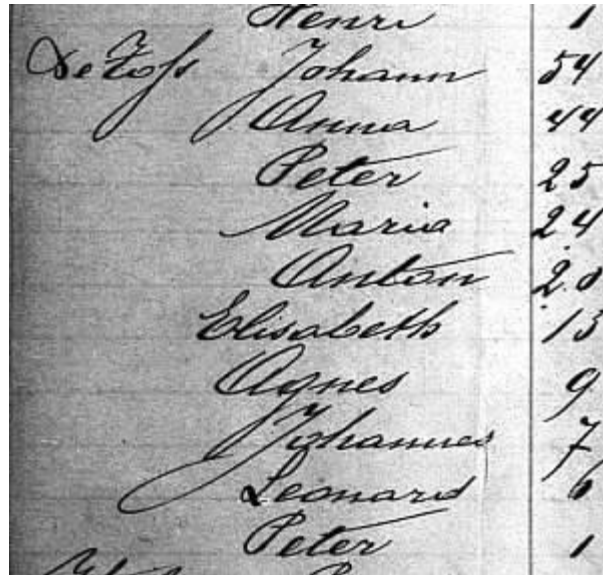 Henri 1
De Foss Johann 54
Anna 44
Peter 25
Maria 24
Anton 20
Elisabeth 15
Agnes 9
Johannes 7
Leonard 6
Peter 1